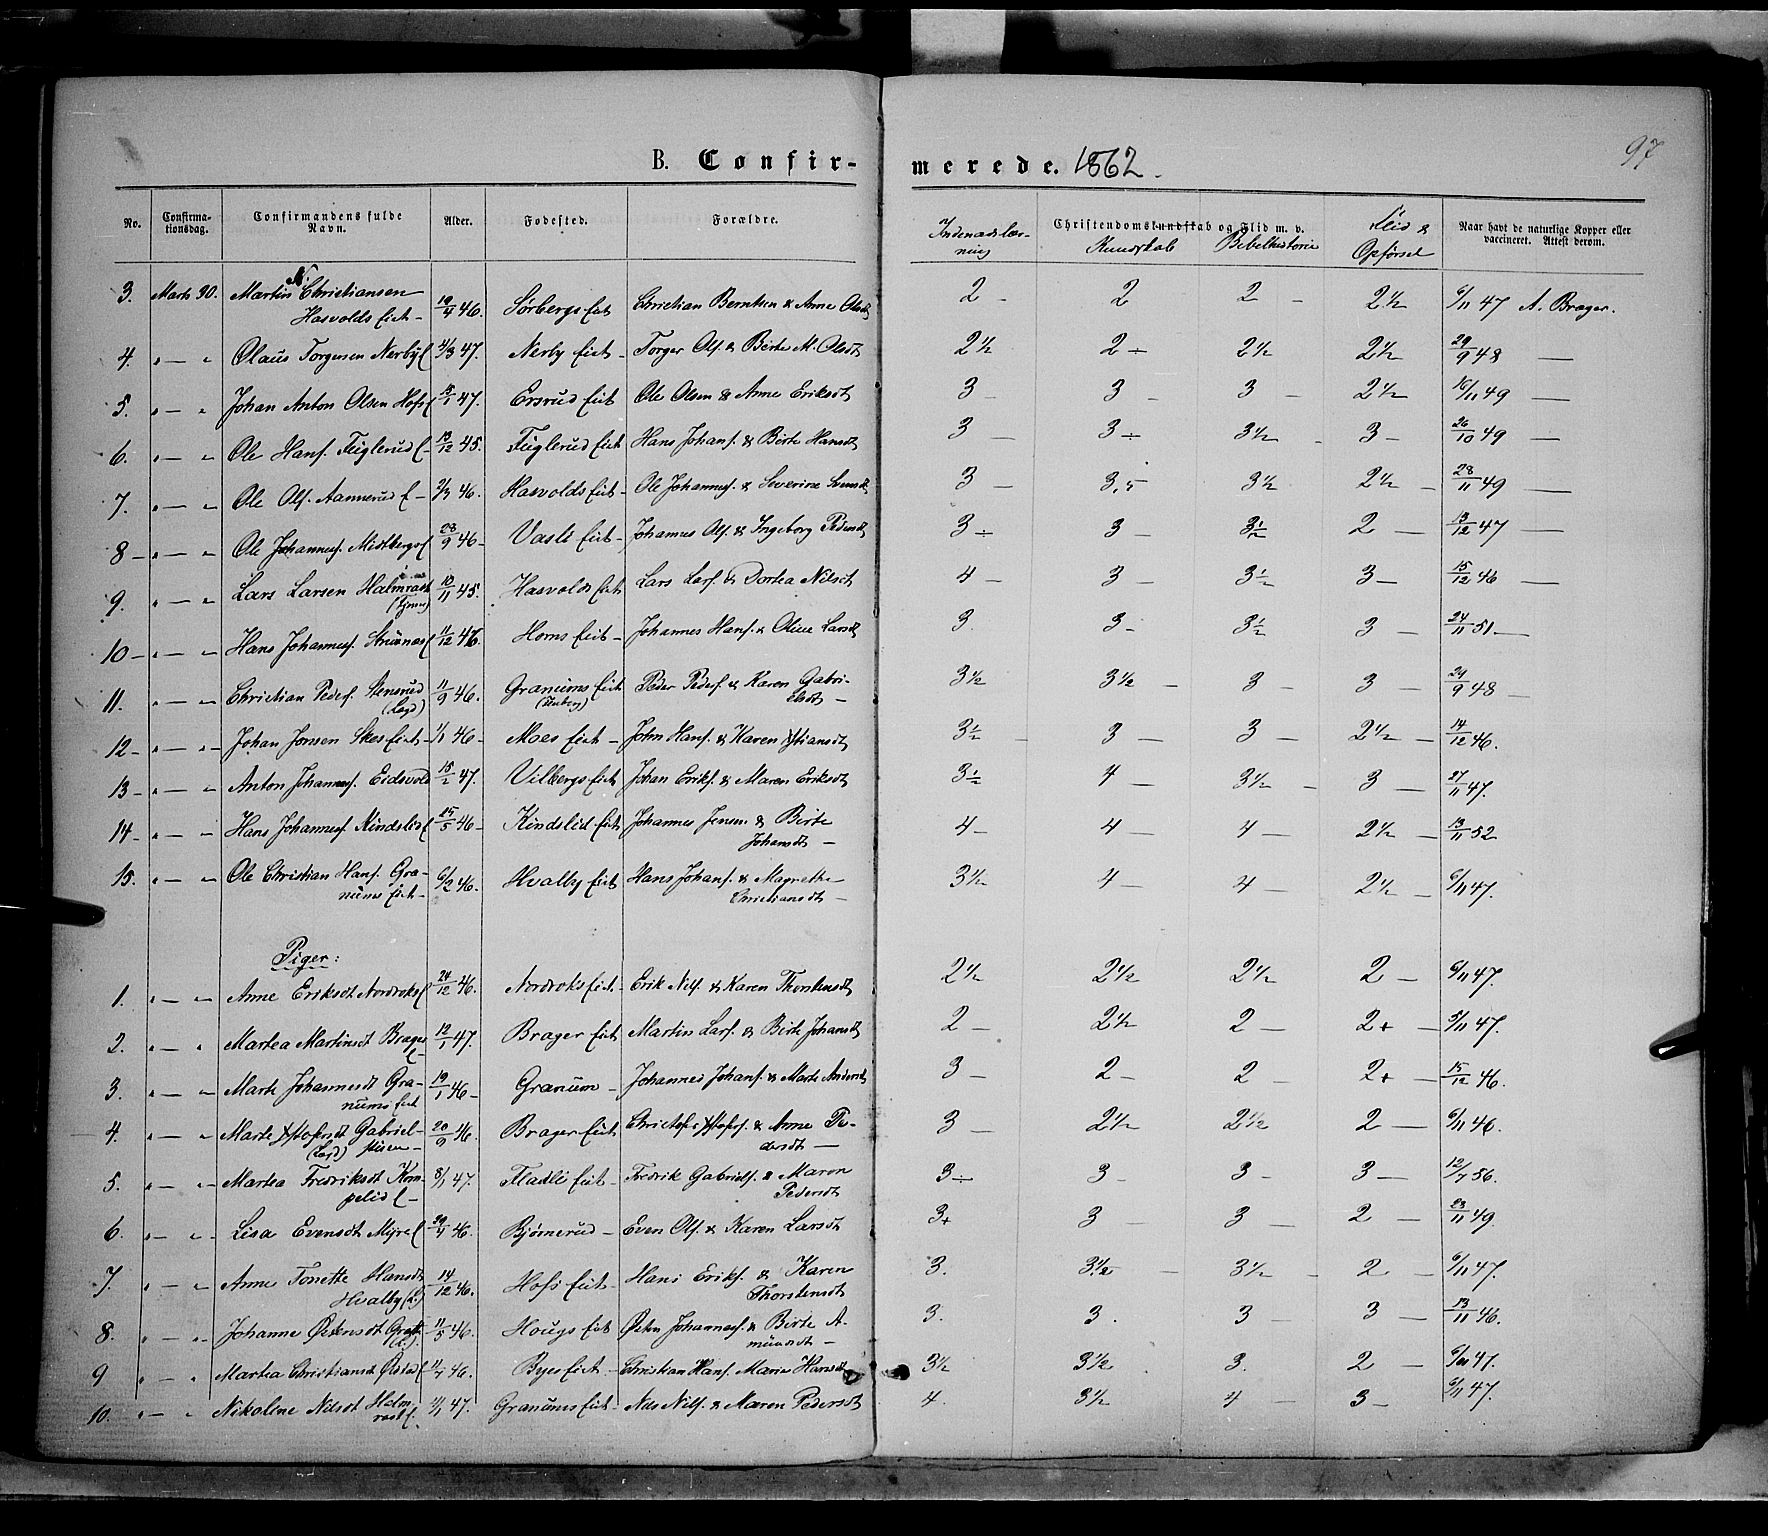 97
B. Confir-merede. 1862.
No. Confirma-tionsdag. Confirmandens fulde Navn. Alder. Fødested. Forældre. Indenadslæs-ning Christendomskundskab og Flid m. v. Kundskab Bibelhistorie Flid & Opførsel Naar havt de naturlige Kopper eller vaccineret. Attest derom.
3. Marts 30. Martin N. Christiansen 19/4 46. Sörbergs eiet Christian Berntsen & Anne Olsdt 2 - 2 2 - 2½ 6/11 47 A. Brager.
Hasvolds eiet -
4. " — " Olaus Torgersen Nerby 4/3 47. Nerby eiet - Torger Ols. & Birte M. Olsdt 2½ 2 ÷ 2½ 2½ 29/9 48 —
5. " — " Johan Anton Olsen Hofs 47. Ersrud eiet Ole Olsen & Anne Eriksdt 3 - 3 3 - 2½ 16/11 49 —
6. " — " Ole Hans. Fuglerud 13/12 45. Fuglerud eiet Hans Johans. & Birte Hansdt 3 — 3 ÷ 3½ - 3 - 26/10 49 —
7. " — " Ole Ols. Aannerud - 2/3 46. Hasvolds eiet - Ole Johannes. & Severine 3 — 3,5 3½ 2½ - 28/11 49 —
8 - " — " Ole Johannes. Midtbergs 28/9 46 - Vasli eiet - Johannes Ols. & Ingeborg Pedersdt 3 ÷ 3 - 3½ 2 — 13/12 47 —
9. " — " Lars Larsen Halmrast 10/11 45. Hasvolds eiet Lars Lars. & Dortea Nilsdt 4 - 3 - 3½ 3 - 15/12 46 —
10 - " — " Hans Johannes. 11/12 46. Horns eiet - Johannes Hans. & Oline Larsdt 3. 3 - 3½ 3 — 24/11 51 —
11. " — " Christian Peders. Stensrud 11/9 46. Granums eiet Peder Peders. & Karen Gabri- 3½ 3½ — 3 — 3 — 29/9 48 —
(Lagd) elsdt —
12 - " — " Johan Jonsen Skes eiet - 1/1 46 - Moes eiet - John Hans. & Karen Xtiansdt 3½ - 3 — 3 — 2½ — 14/12 46.
13 - " — " Anton Johannes. Eidsvold 15/2 47. Vilbergs eiet Johan Eriks. & Maren Eriksdt 3½ 4 — 3½ - 3 — 27/11 47.
14 - " — " Hans Johannes. Kindslid 25/5 46 - Kindslid eiet Johannes Jensen & Birte 4 - 4 — 4 — 2½ — 13/11 52
Johansdt —
15. " — " Ole Christian Hans. Gra- 6/2 46. Hvalby eiet Hans Johans. & Magrethe 3½ 4 — 4 — 2½ — 6/11 47.
nums eiet - Christiansdt —
Piger:
1. " — " Anne Eriksdt Nordroks 24/12 46. Nordroks eiet - Erik Nils. & Karen Thorstensdt 2½ 2½ 2½ 2 — 6/11 47.
2. " — " Martea Martinsdt Brager 12/1 47. Brager eiet Martin Lars. & Birte Johansdt 2 — 2½ 2 — 2+ — 6/11 47.
3. " — " Marte Johannesdt Gra- 19/1 46 - Granum - Johannes Johans. & Marte Andersdt 3 — 2 - 2 — 2+ — 15/12 46.
nums eiet
4. " — " Marte Xstofersdt Gabriel- 20/9 46. Brager eiet Christofer Xstofers. & Anne Pe- 3 — 2½ 2½ 2 — 6/11 46.
dersdt —
5. " — " Martea Fredriksdt Kom- 8/1 47. Fladli eiet - Fredrik Gabriels. & Maren 3 ÷ 3 - 3 - 3 — 12/7 56.
pelid - Pedersdt
6. " — " Lisa Evensdt Myre 29/4 46. Bjørnerud - Even Ols. & Karen Larsdt 3+ 3 — 3 — 2 — 23/11 49.
7. " — " Anne Tonette Hansdt 14/12 46. Hofs eiet - Hans Eriks. & Karen 3. 3½ — 3½ - 2 — 6/11 47.
Hvalby (L.) Thorstensdt
8. " — " Johanne Østensdt 11/5 46. Hougs eiet Østen Johannes. & Birte A- 3. 3. 3 — 3 — 13/11 46.
mundsdt —
9 " — " Martea Christiansdt 46. Byes eiet - Christian Hans. Marie Hansdt 3½ 3½ 3. 2 — 6/11 47.
10. " — " Nikoline Nilsdt Halm- 4/1 47. Granums eiet - Nils Nils. & Maren Pedersdt 4. 3½ 4 — 3 - 6/11 47.
rast